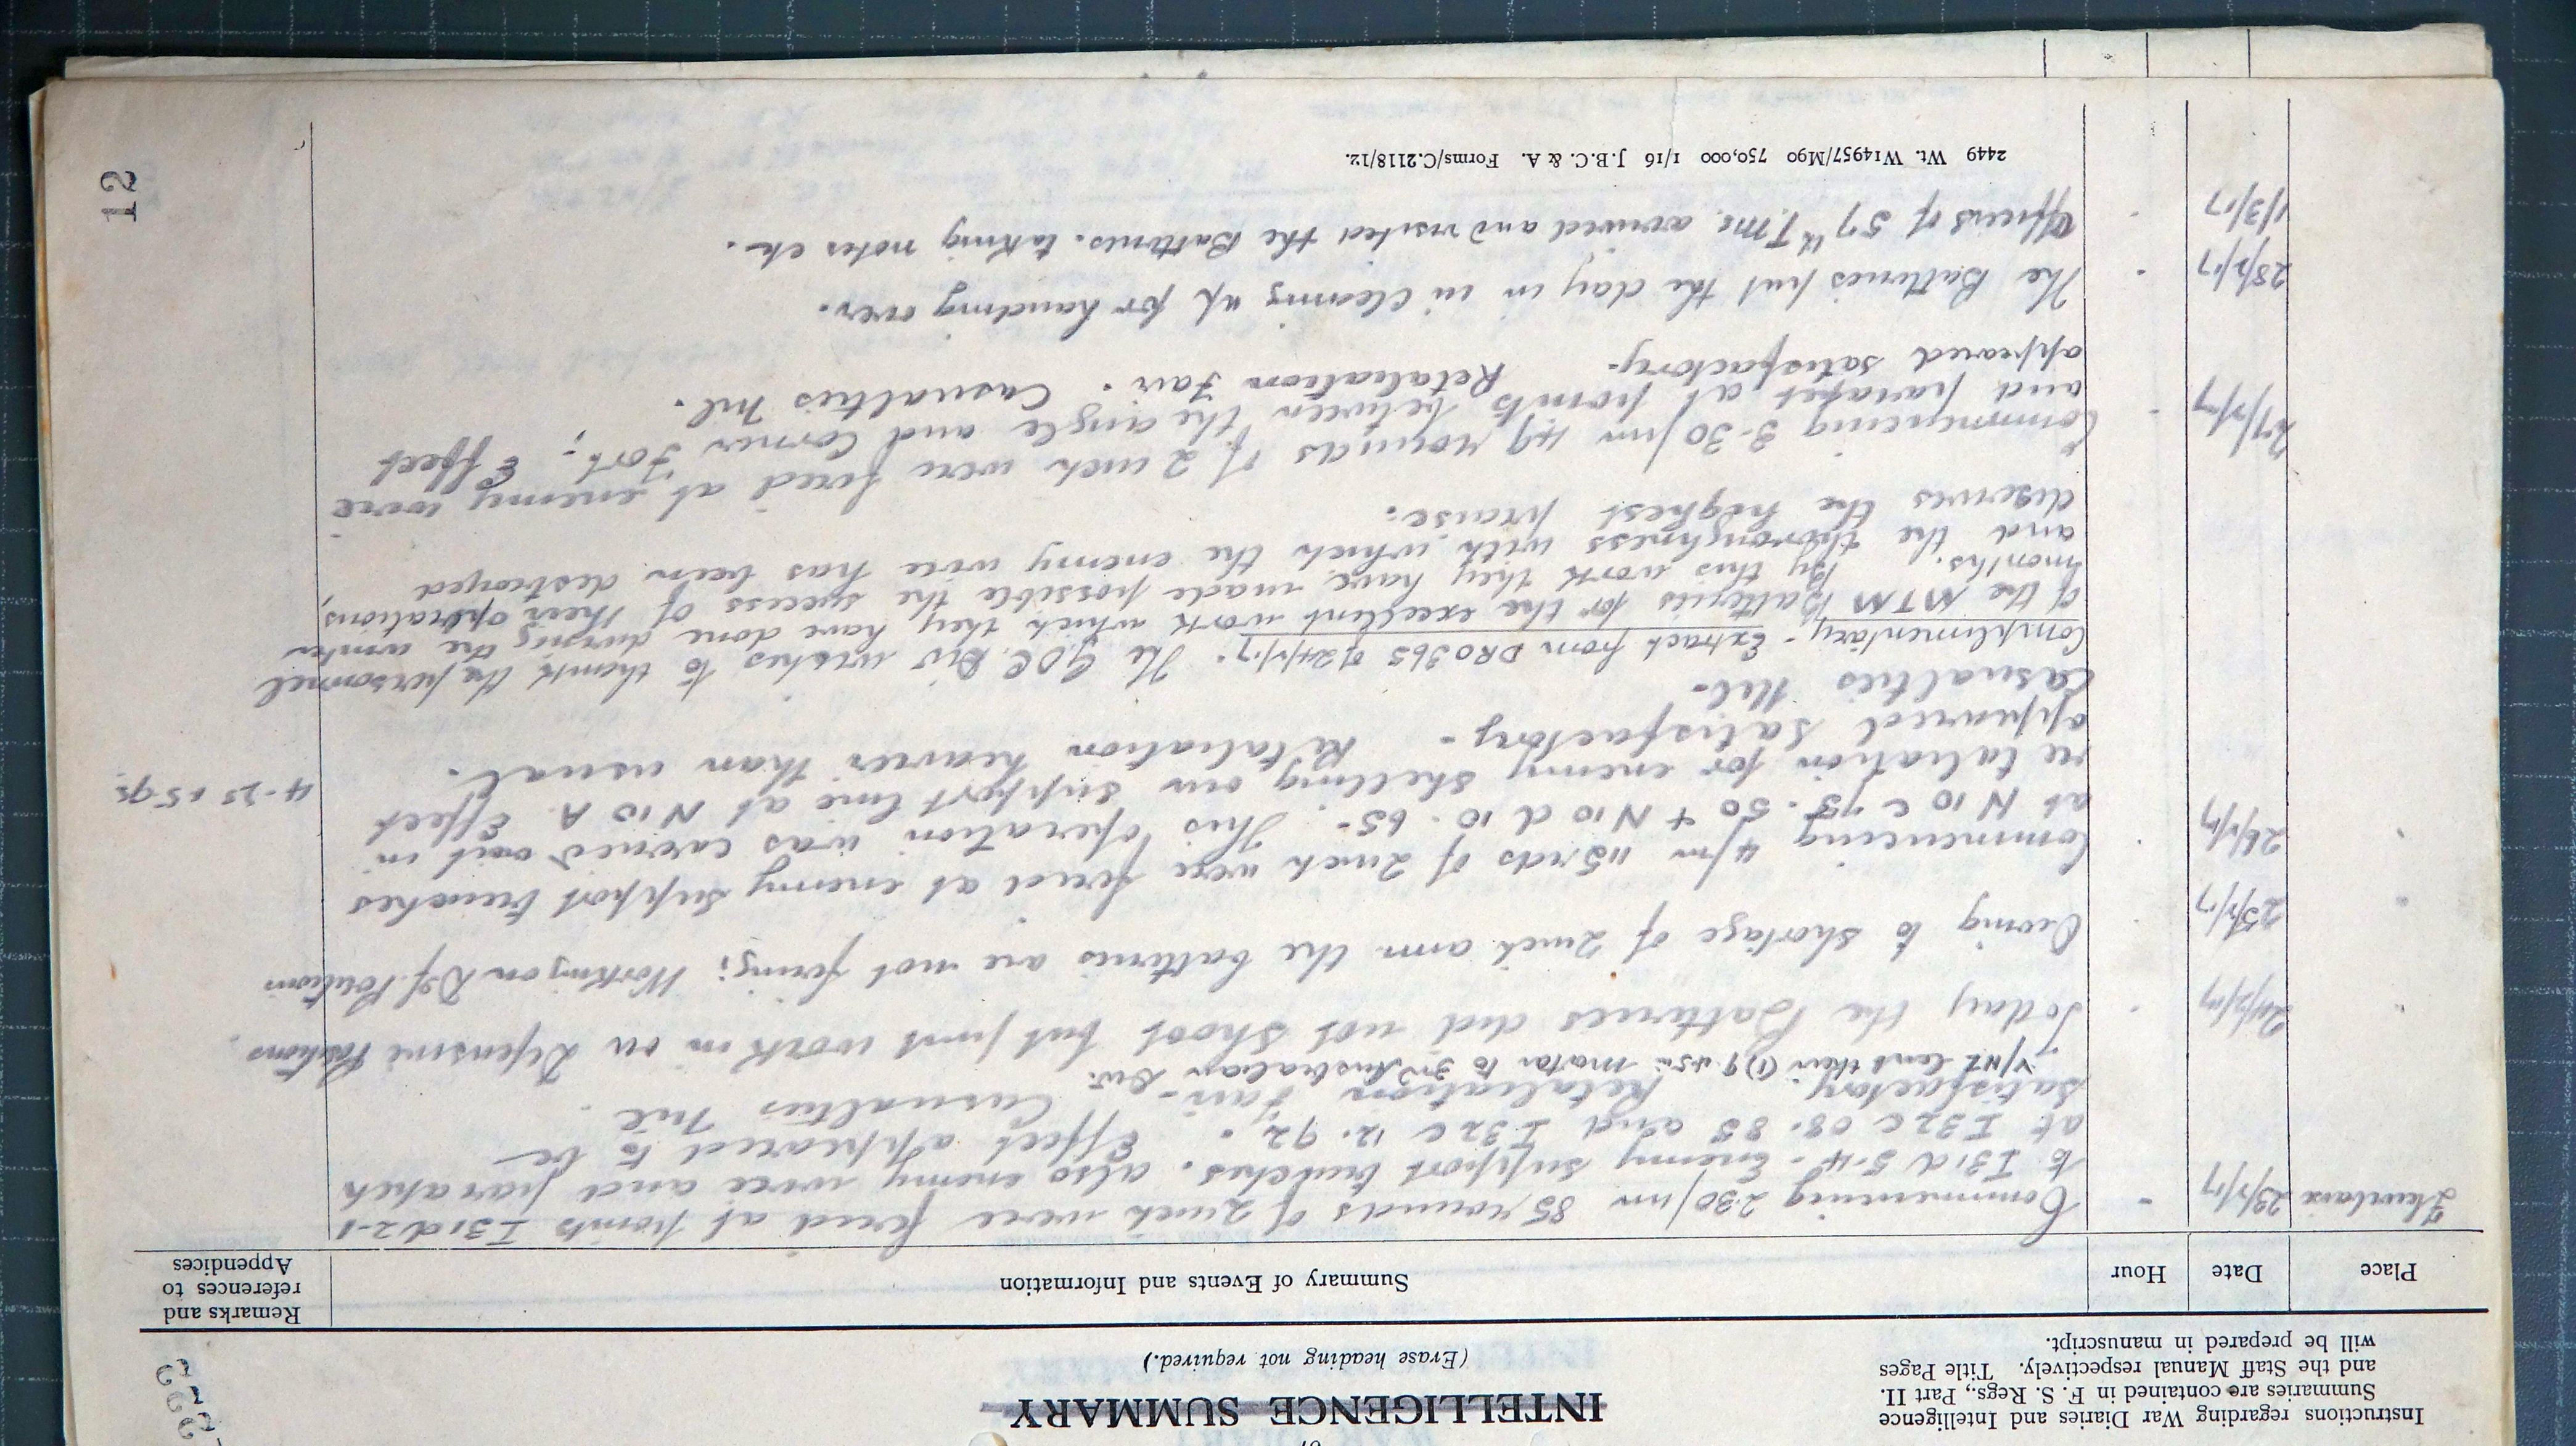 Instructions regarding War Diaries and Intelligence
Summaries are contained in F. S. Regs., Part II.
and the Staff Manual respectively. Title Pages
will be prepared in manuscript.
INTELLIGENCE SUMMARY
(Erase heading not required.)
Place
Date
Hour
Summary of Events and Information
Remarks and
references to
Appendices
Fleurbaix 23/2/17 Commencing 2.30/pm 85 rounds of 2 inch were fired at points I31d2-1
to I31d 5.4 - Enemy support trenches. also enemy wire and parapet
at I32c 08.85 and I32c 12.92. Effect appeared to be
satisfactory. Retaliation Fair - Casualties Nil.
V/NZ lent their (1) 9.45in mortar to 3rd Australian Div.
24/2/17 Today the Batteries did not shoot but put work in on Defensive Positions.
25/2/17 Owing to shortage of 2 inch am the batteries are not firing; Working on Def. Positions
26/2/17 Commencing 4/pm 115 rds of 2 inch were fired at enemy support trenches
at N10 c 75.50 + N10 d 10.65. This operation was carried out in
retaliation for enemy shelling our support line at N10 A. Effect
appeared satisfactory - Retaliation heavier than usual. 4-25 & 5-9s
Casualties Nil.
Complimentary - Extract from DRO 365 of 24/2/17. The G.O.C. Div wishes to thank the personnel
of the MTM Batteries for the excellent work which they have done during the winter
months. By this work they have made possible the success of their operations,
and the thoroughness with which the enemy wire has been destroyed
deserves the highest praise.
27/2/17 Commencing 3-30/pm 49 rounds of 2 inch were fired at enemy wire
and parapet at points between the angle and Corner Fort; Effect
appeared satisfactory. Retaliation Fair. Casualties Nil.
28/2/17 The Batteries put the day in in cleaning up for handing over.
1/3/17 Officers of 57th T.Ms. arrived and visited the Batteries. taking notes etc.
2449 Wt. W14957/M90 750,000 1/16 J.B.C. & A. Forms/C.2118/12.
12